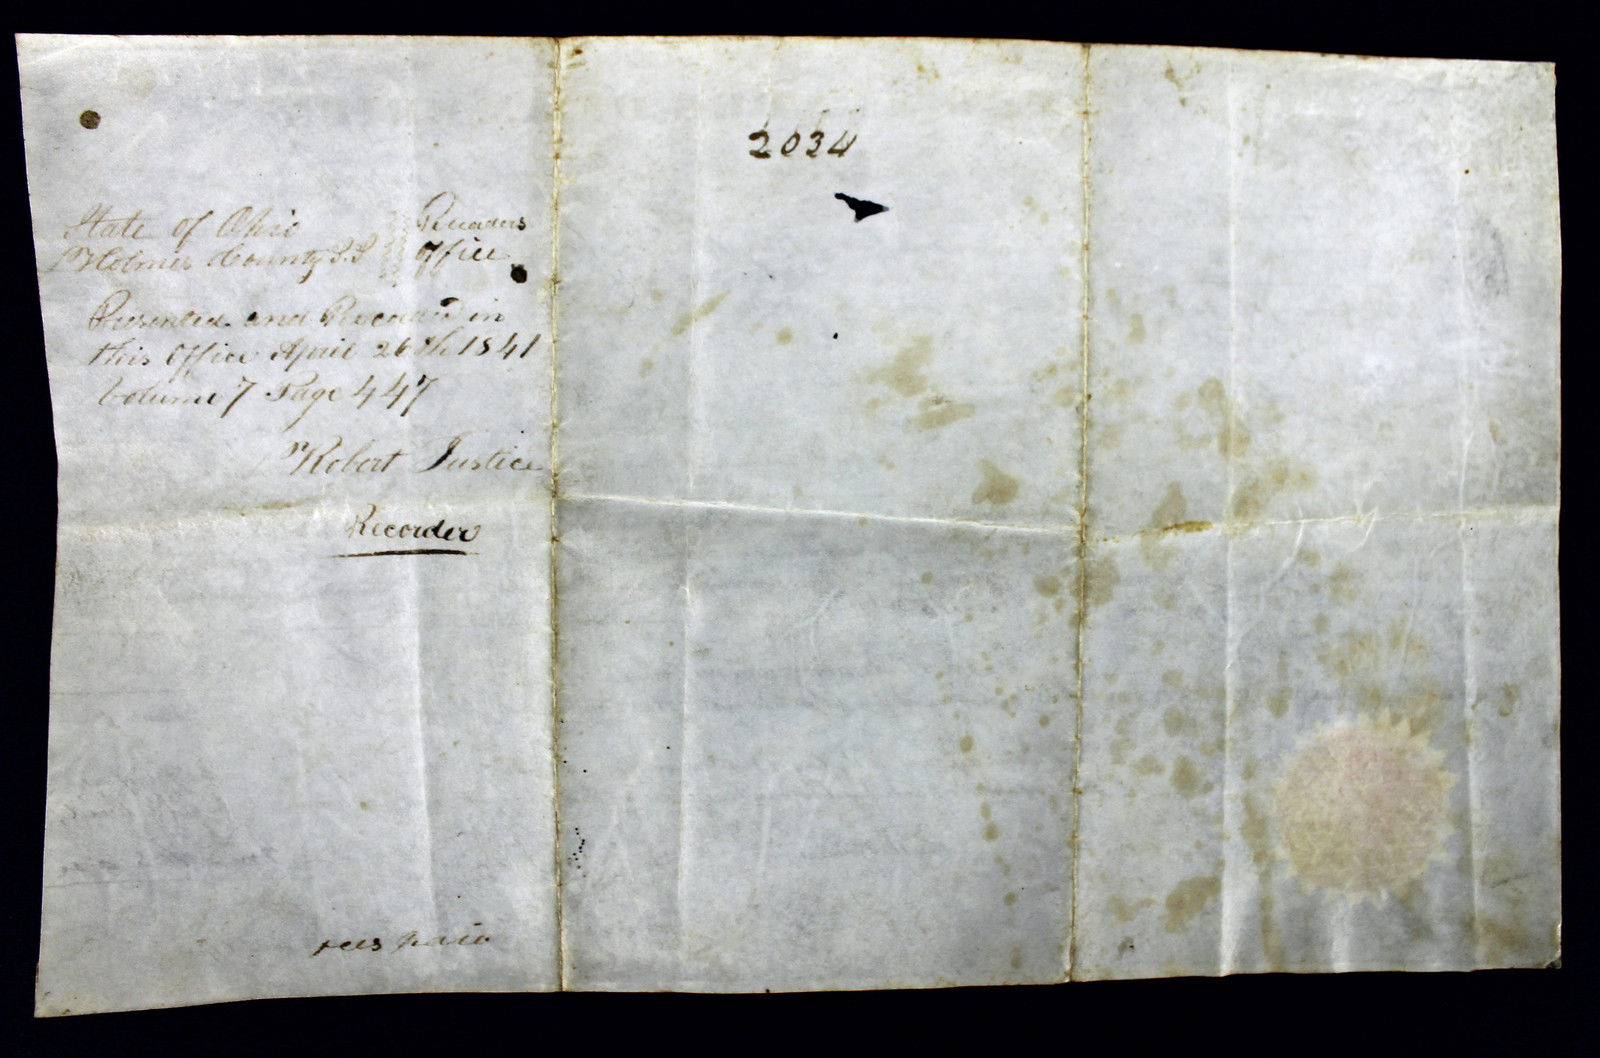 2034
State of Ohio } Recorders
Holmes County S.S } Office
Presented and Recorded in
this Office April 26th 1841
Volume 7 Page 447
Robert Justice
Recorder
fees paid